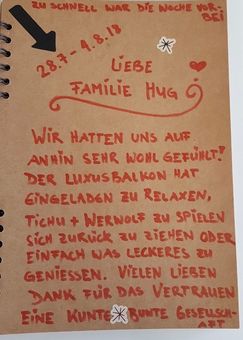 ZU SCHNELL WAR DIE WOCHE VOR-
BEI
28.7 - 4.8.18
LIEBE
FAMILIE HUG
WIR HATTEN UNS AUF
ANHIN SEHR WOHL GEFÜHLT!
DER LUXUSBALKON HAT
EINGELADEN ZU RELAXEN,
TICHU + WERWOLF ZU SPIELEN
SICH ZURÜCK ZU ZIEHEN ODER
EINFACH WAS LECKERES ZU
GENIESSEN. VIELEN LIEBEN
DANK FÜR DAS VERTRAUEN
EINE KUNTERBUNTE GESELLSCH-
AFT